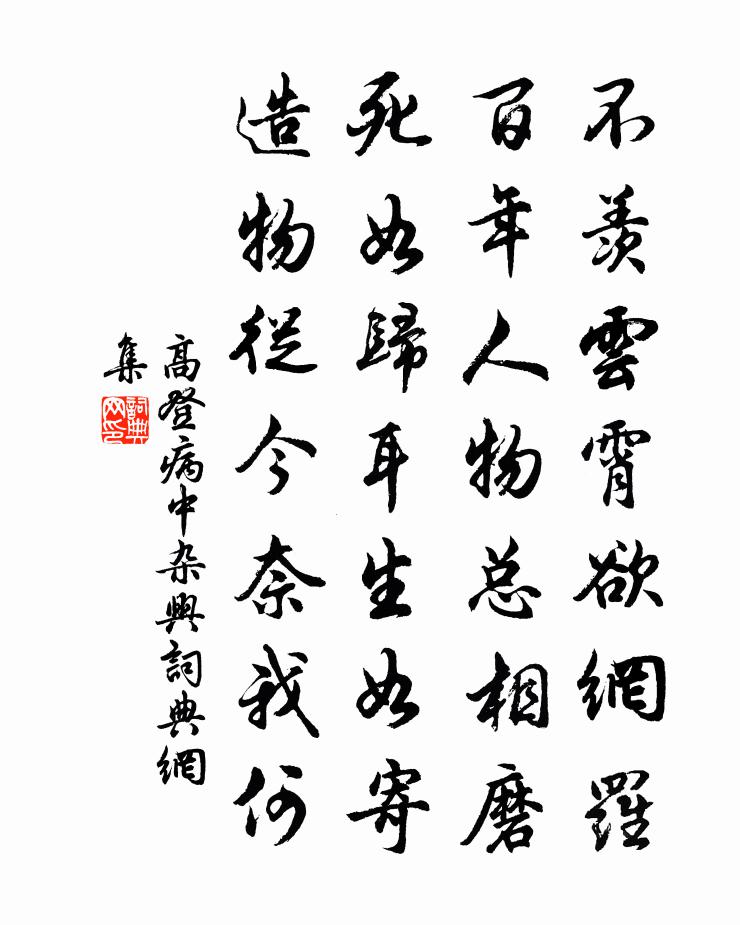 不羨雲霄欲網羅
百年人物总相磨
死如歸耳生如寄
造物從今奈我何
高登病中杂興詞典網
集
詞典
网印